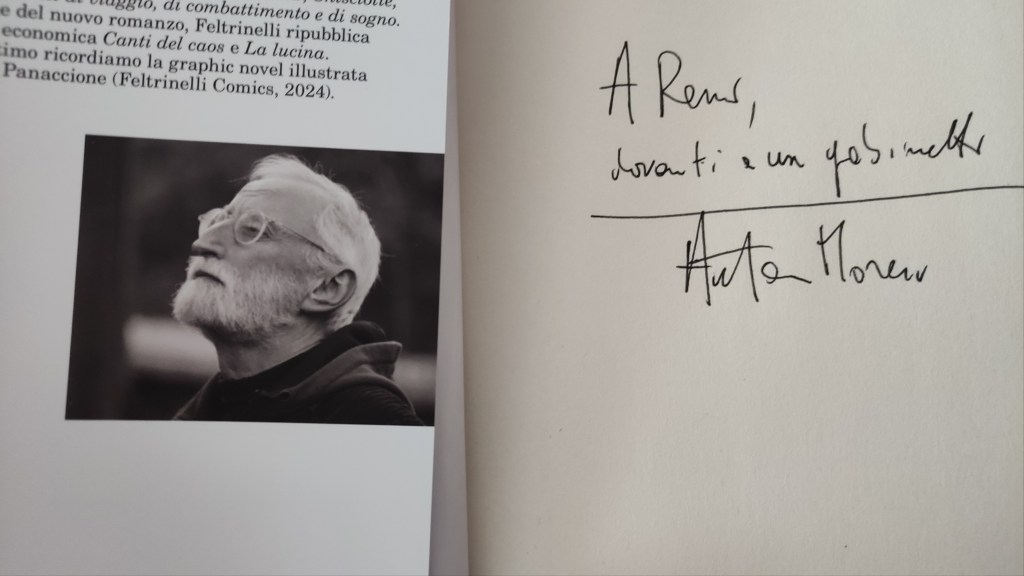 di viaggio, di combattimento e di sogno.
e del nuovo romanzo, Feltrinelli ripubblica
economica Canti del caos e La lucina.
timo ricordiamo la graphic novel illustrata
Panaccione (Feltrinelli Comics, 2024).
A Remo,
davanti a un gabinetto
Antonio Moresco